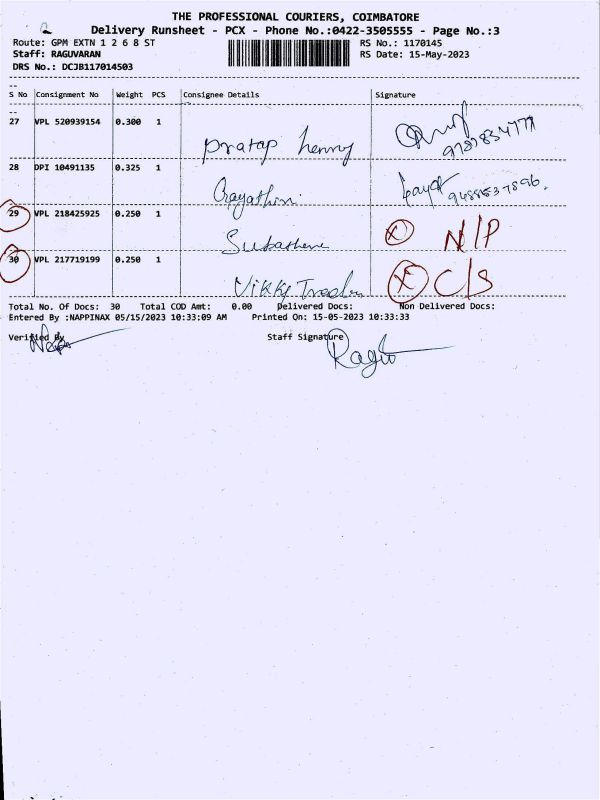 THE PROFESSIONAL COURIERS, COIMBATORE
2 Delivery Runsheet - PCX - Phone No.:0422-3505555 - Page No.:3
Route: GPM EXTN 1 2 6 8 ST RS No.: 1170145
Staff: RAGUVARAN RS Date: 15-May-2023
DRS No.: DCJB117014503
S No Consignment No Weight PCS Consignee Details Signature
27 VPL 520939154 0.300 1
Pratap henny
28 DPI 10491135 0.325 1
Gayathiri Gayat
29 VPL 218425925 0.250 1
Subashene X N/P
30 VPL 217719199 0.250 1
Vikky Traders X C/S
Total No. Of Docs: 30 Total COD Amt: 0.00 Delivered Docs: Non Delivered Docs:
Entered By :NAPPINAX 05/15/2023 10:33:09 AM Printed On: 15-05-2023 10:33:33
Verified By Staff Signature
Ragu